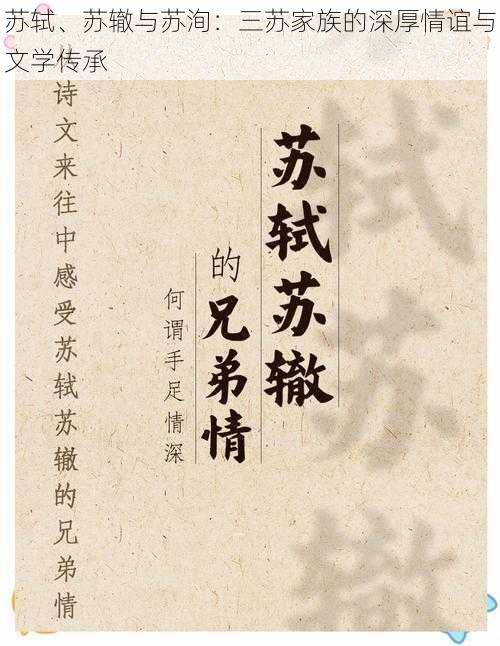 苏轼、苏辙与苏洵：三苏家族的深厚情谊与
文学传承
轼苏辙
苏轼苏辙
的兄弟情
何谓手足情深
诗文来往中感受苏轼苏辙的兄弟情